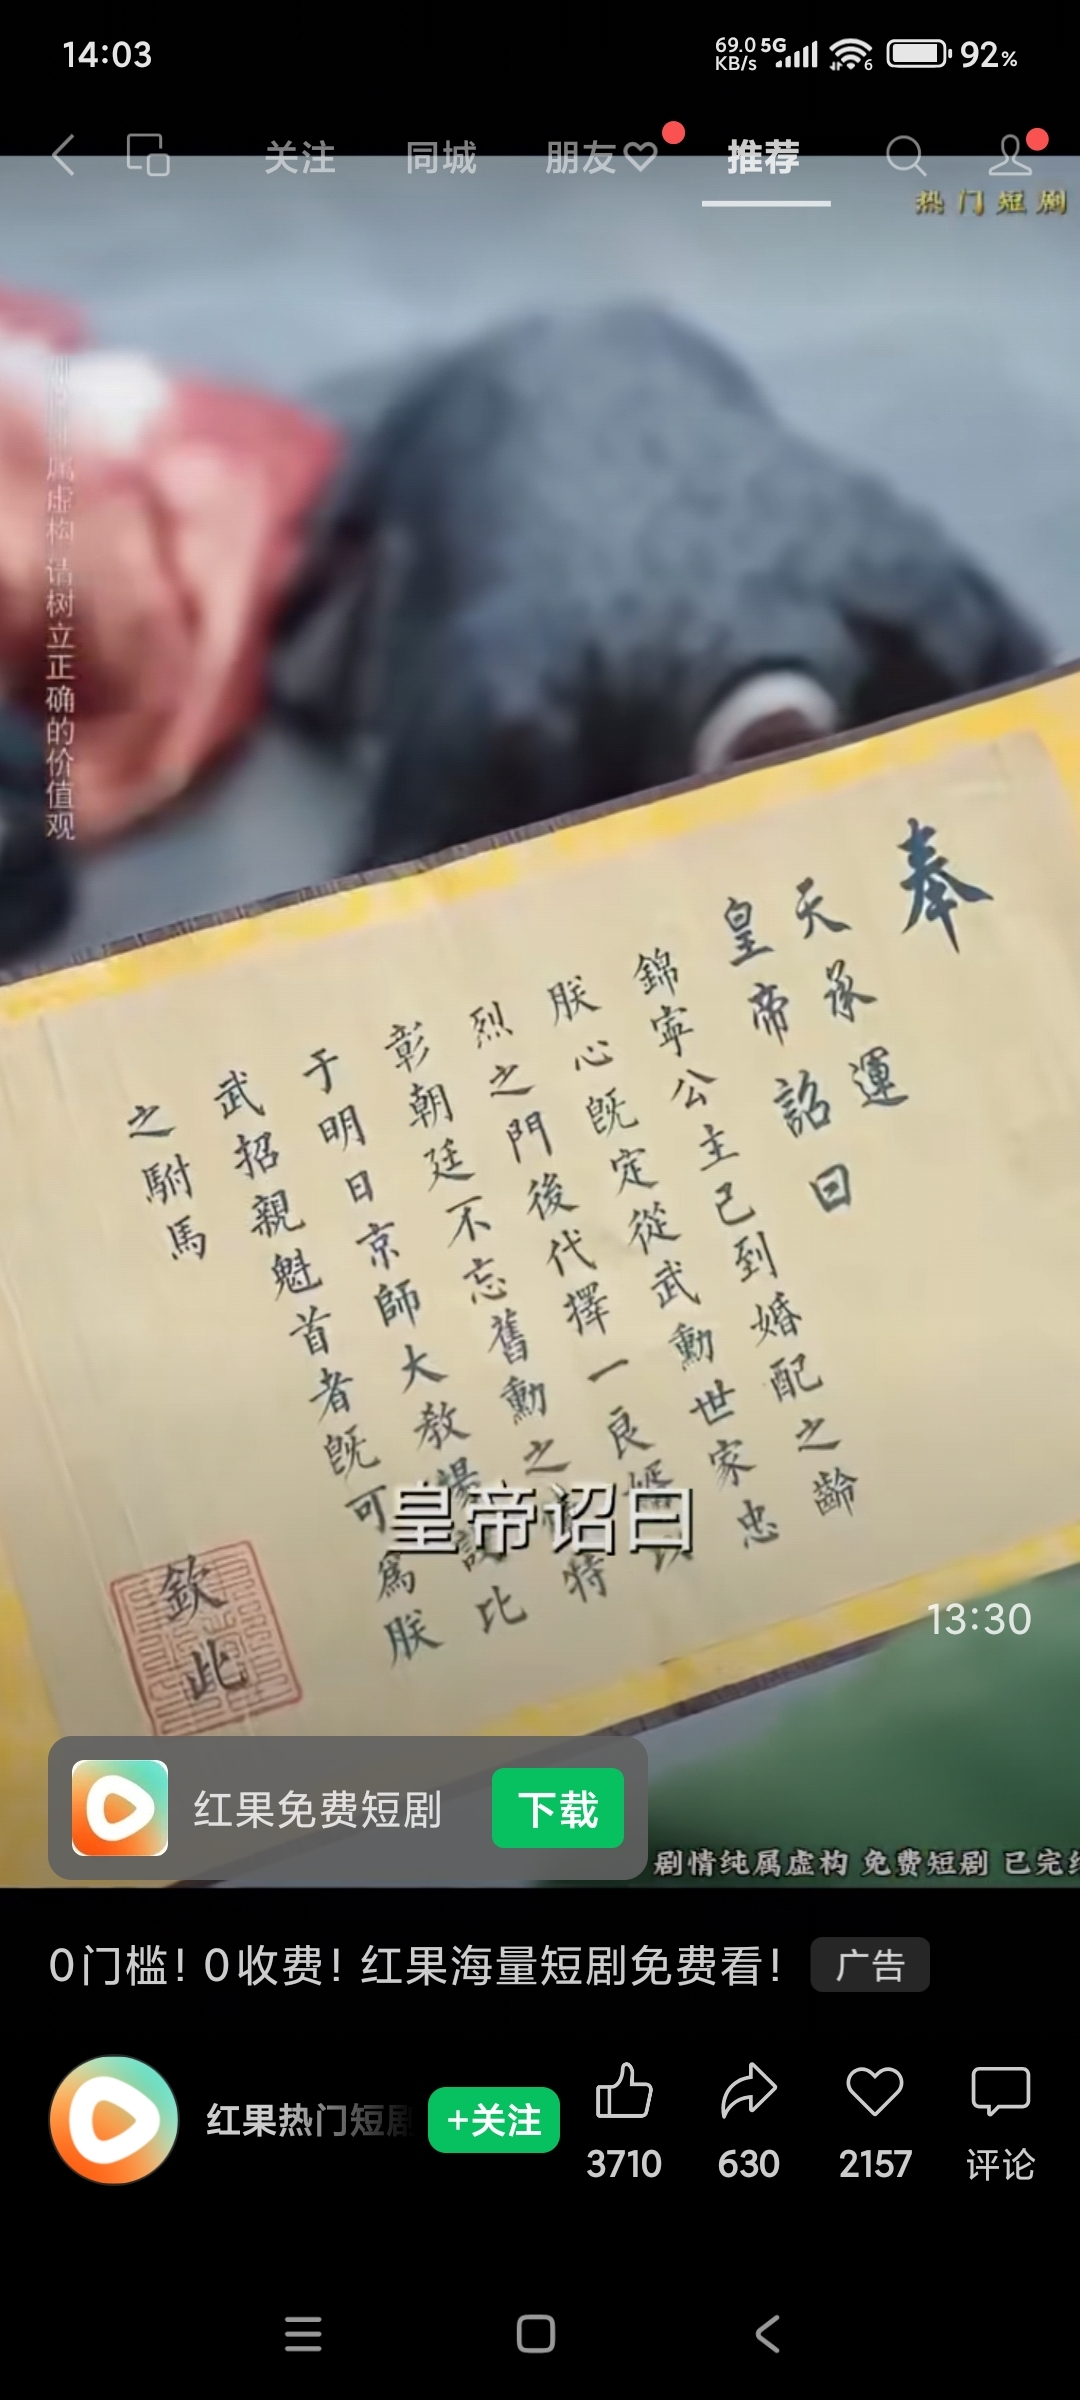 14:03
69.0 KB/s
5G
6
92%
关注
同城
朋友
推荐
热门短剧
属虚构 请树立正确的价值观
奉
天承運
皇帝詔曰
錦寧公主已到婚配之齡
朕心既定從武勳世家忠
烈之門後代擇一良婿以
彰朝廷不忘舊勳之情特
于明日京師大教場設比
武招親魁首者既可爲朕
之駙馬
欽此
皇帝诏曰
13:30
红果免费短剧
下载
剧情纯属虚构 免费短剧 已完结
0门槛！0收费！红果海量短剧免费看！
广告
红果热门短剧
+关注
3710
630
2157
评论